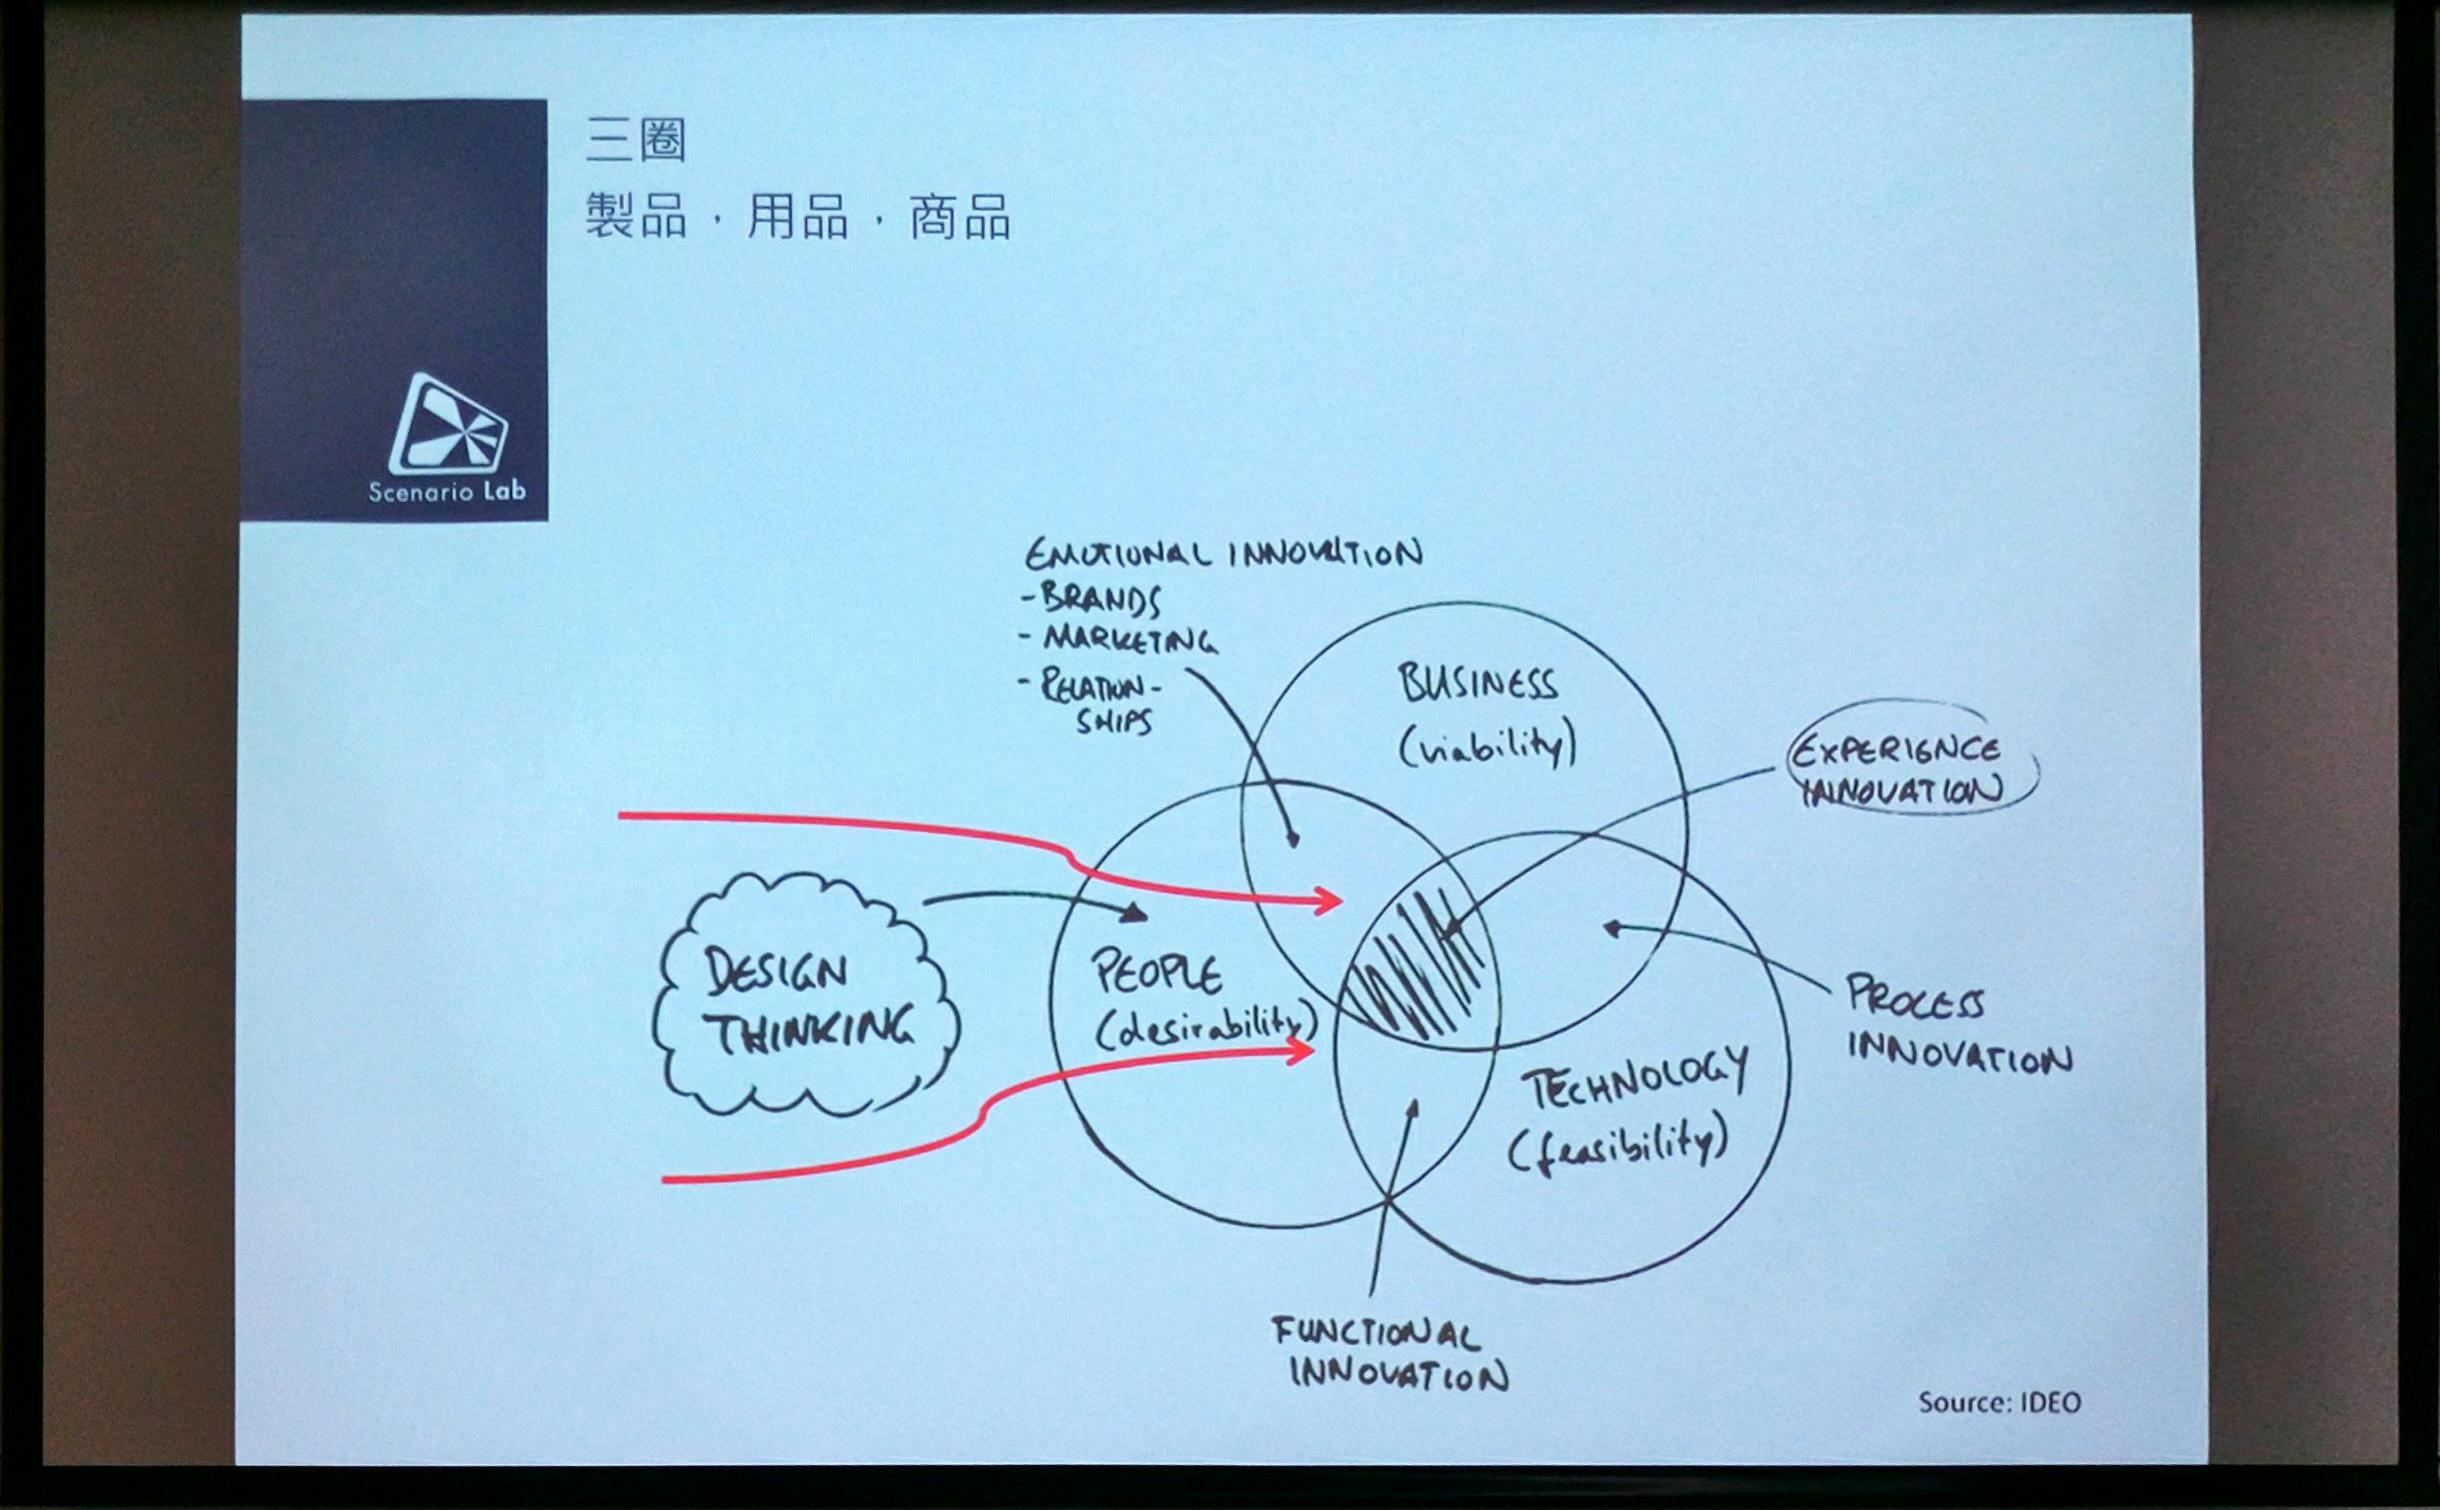 三圈
製品，用品，商品
Scenario Lab
EMOTIONAL INNOVATION
-BRANDS
- MARKETING
- RELATION-
SHIPS
BUSINESS
(viability)
EXPERIENCE
INNOVATION
DESIGN
THINKING
PEOPLE
(desirability)
PROCESS
INNOVATION
TECHNOLOGY
(feasibility)
FUNCTIONAL
INNOVATION
Source: IDEO